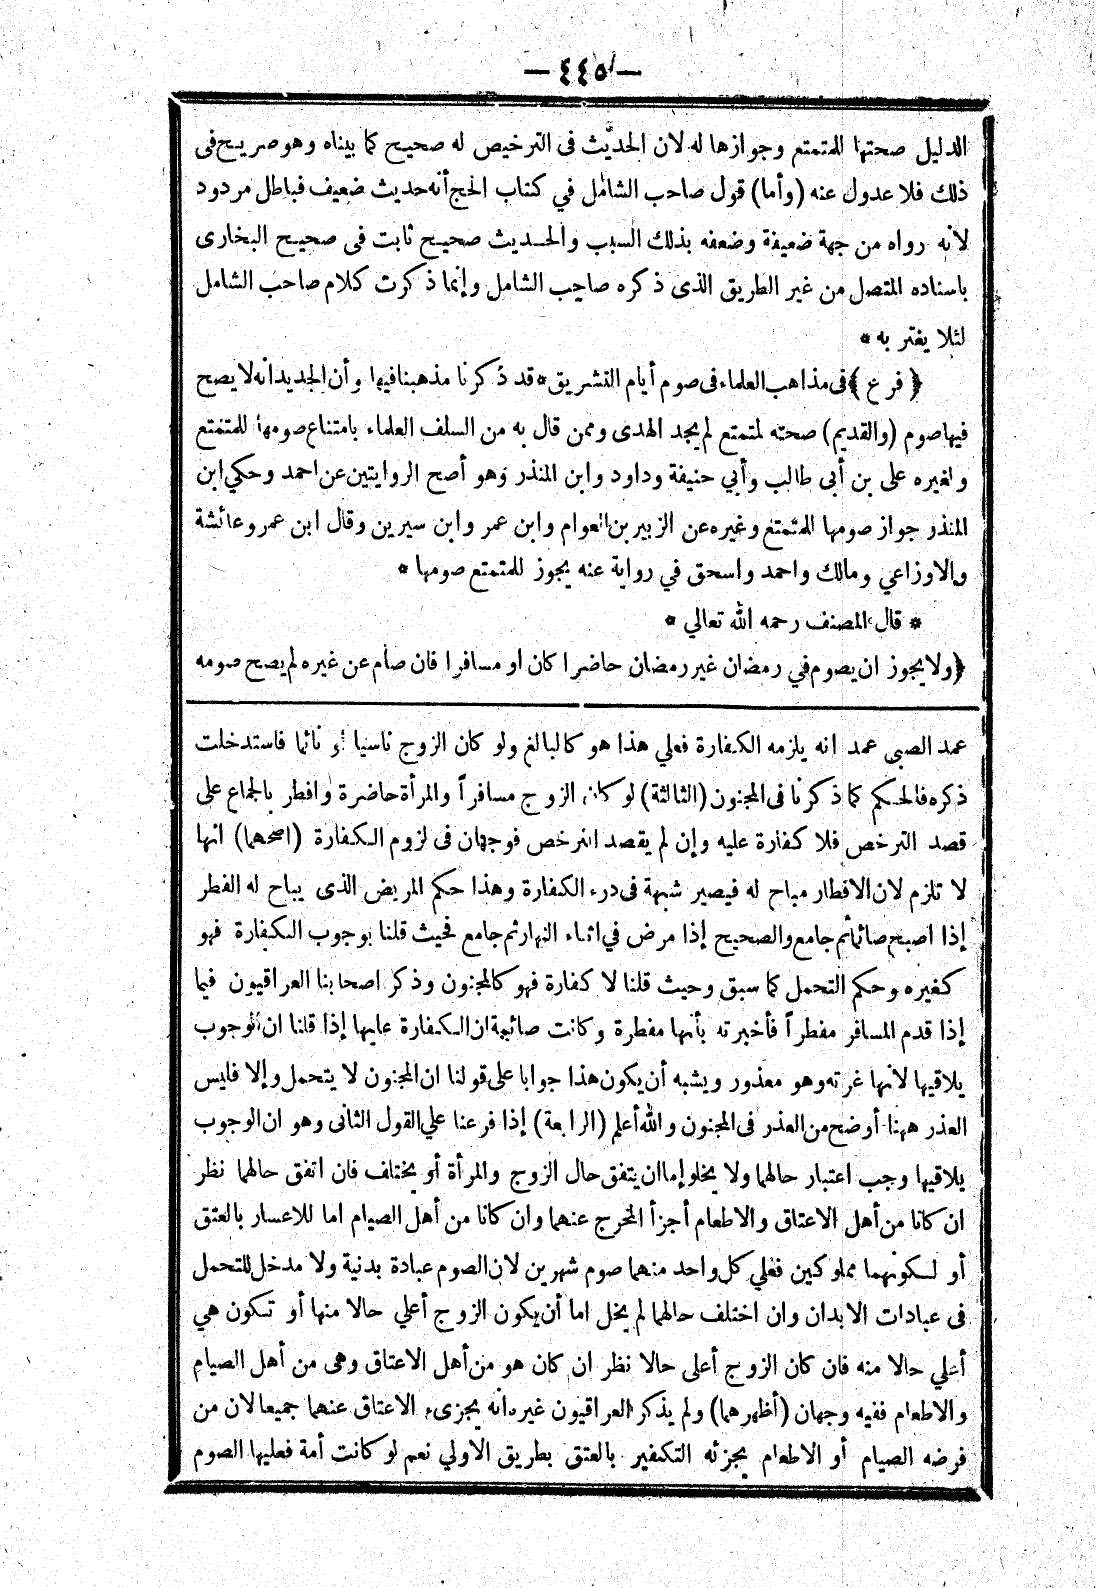 — ٤٤٥ —
الدليل صحتها للمتمتع وجوازها له لان الحديث فى الترخيص له صحيح كما بيناه وهو صريح فى
ذلك فلا عدول عنه (وأما) قول صاحب الشامل في كتاب الحج أنه حديث ضعيف فباطل مردود
لانه رواه من جهة ضعيفة وضعفه بذلك السبب والحديث صحيح ثابت فى صحيح البخارى
باسناده المتصل من غير الطريق الذى ذكره صاحب الشامل وإنما ذكرت كلام صاحب الشامل
لئلا يغتر به *
﴿ فرع ﴾ فى مذاهب العلماء فى صوم أيام التشريق * قد ذكرنا مذهبنا فيها وأن الجديد انه لا يصح
فيها صوم (والقديم) صحته لمتمتع لم يجد الهدى وممن قال به من السلف العلماء بامتناع صومها للمتمتع
ولغيره على بن أبى طالب وأبي حنيفة وداود وابن المنذر وهو أصح الروايتين عن احمد وحكي ابن
المنذر جواز صومها للمتمتع وغيره عن الزبير بن العوام وابن عمر وابن سيرين وقال ابن عمر وعائشة
والاوزاعي ومالك واحمد واسحق في رواية عنه يجوز للمتمتع صومها *
* قال المصنف رحمه الله تعالي *
﴿ولا يجوز ان يصوم في رمضان غير رمضان حاضرا كان او مسافرا فان صام عن غيره لم يصح صومه
عمد الصبى عمد انه يلزمه الكفارة فعلي هذا هو كالبالغ ولو كان الزوج ناسيا أو نائما فاستدخلت
ذكره فالحكم كما ذكرنا فى المجنون (الثالثة) لو كان الزوج مسافراً والمرأة حاضرة وافطر بالجماع على
قصد الترخص فلا كفارة عليه وإن لم يقصد الترخص فوجهان فى لزوم الكفارة (اصحهما) انها
لا تلزم لان الافطار مباح له فيصير شبهة فى درء الكفارة وهذا حكم المريض الذى يباح له الفطر
إذا اصبح صائما ثم جامع والصحيح إذا مرض في اثناء النهار ثم جامع فحيث قلنا بوجوب الكفارة فهو
كغيره وحكم التحمل كما سبق وحيث قلنا لا كفارة فهو كالمجنون وذكر اصحابنا العراقيون فيما
إذا قدم المسافر مفطراً فأخبرته بأنها مفطرة وكانت صائمة ان الكفارة عليها إذا قلنا ان الوجوب
يلاقيها لانها غرته وهو معذور ويشبه أن يكون هذا جوابا على قولنا ان المجنون لا يتحمل وإلا فليس
العذر ههنا أوضح من العذر فى المجنون والله أعلم (الرابعة) إذا فرعنا علي القول الثانى وهو ان الوجوب
يلاقيها وجب اعتبار حالهما ولا يخلو إما ان يتفق حال الزوج والمرأة أو يختلف فان اتفق حالهما نظر
ان كانا من أهل الاعتاق والاطعام أجزأ المخرج عنهما وان كانا من أهل الصيام اما للاعسار بالعتق
أو لكونهما مملوكين فعلي كل واحد منهما صوم شهرين لان الصوم عبادة بدنية ولا مدخل للتحمل
فى عبادات الابدان وان اختلف حالهما لم يخل اما أن يكون الزوج أعلي حالا منها أو تكون هي
أعلي حالا منه فان كان الزوج أعلى حالا نظر ان كان هو من أهل الاعتاق وهى من أهل الصيام
والاطعام ففيه وجهان (أظهرهما) ولم يذكر العراقيون غيره انه يجزىء الاعتاق عنهما جميعا لان من
فرضه الصيام أو الاطعام يجزئه التكفير بالعتق بطريق الاولي نعم لو كانت أمة فعليها الصوم